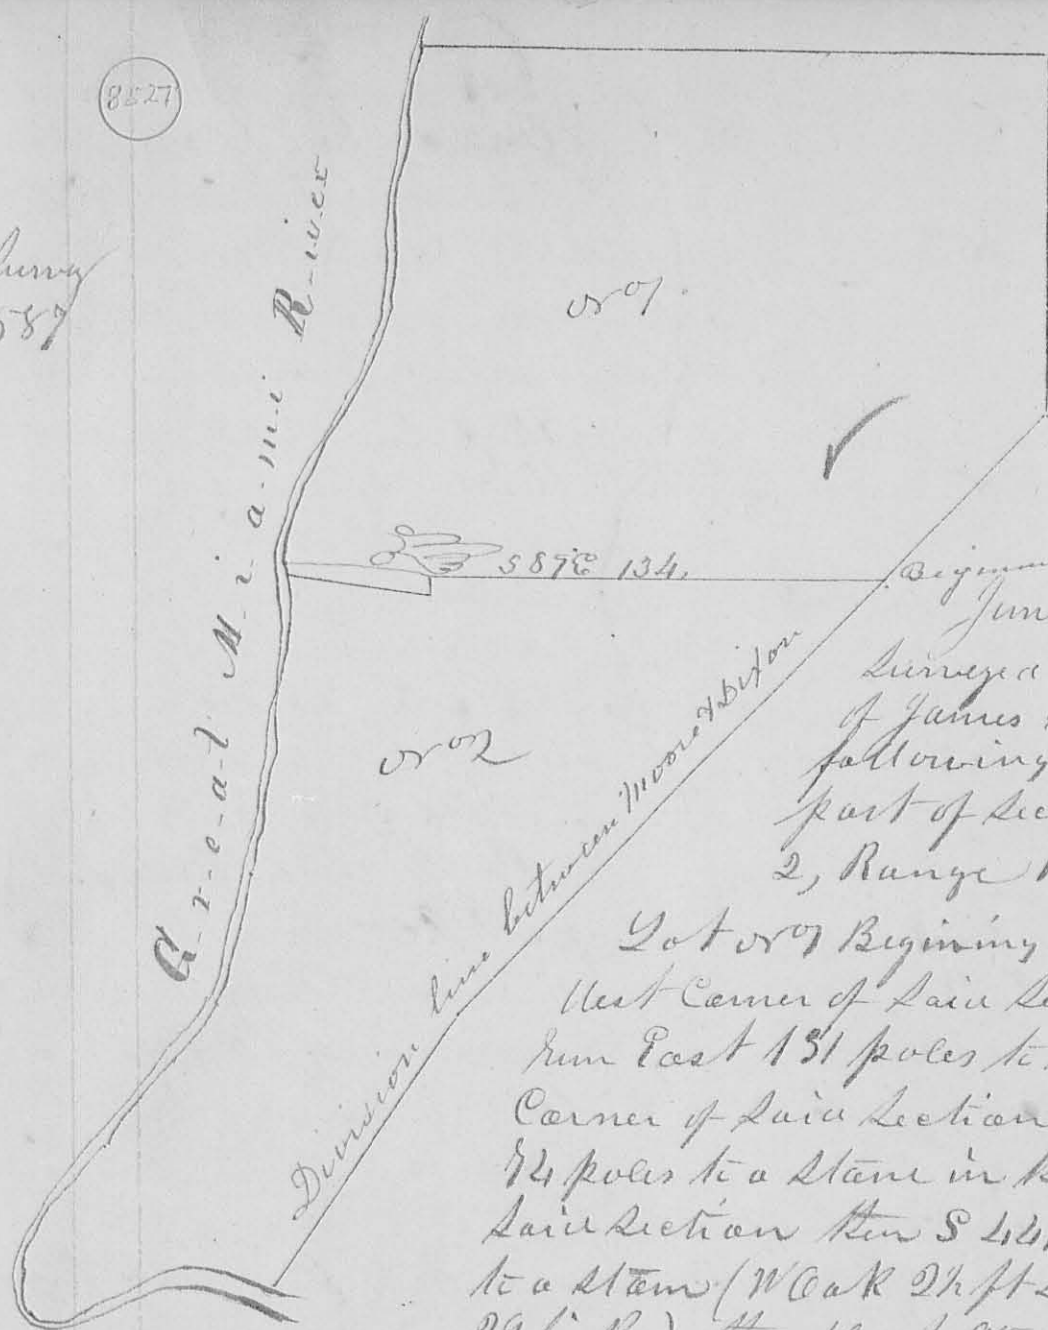 8527
Survey
587
Great Miami River
No 1.
S 87 E 134.
No 2
Division line between Moore & Dixon
Surveyed
of James
following
part of Sec
2, Range
Lot No 1 Begining
West Corner of Said Se
run East 131 poles to
Corner of Said Section
84 poles to a Stone in
Said Section then S 44
to a Stone (W Oak ft